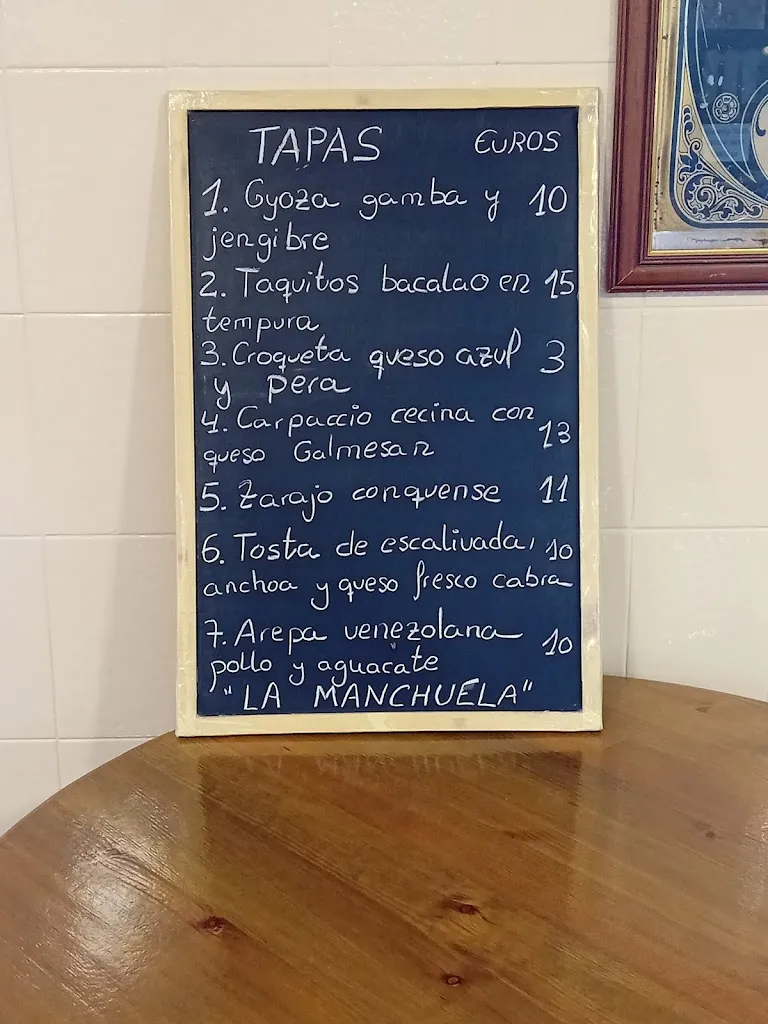 TAPAS EUROS
1. Gyoza gamba y 10
jengibre
2. Taquitos bacalao en 15
tempura
3. Croqueta queso azul 3
y pera
4. Carpaccio cecina con 13
queso Galmesan
5. Zarajo conquense 11
6. Tosta de escalivada, 10
anchoa y queso fresco cabra
7. Arepa venezolana 10
pollo y aguacate
"LA MANCHUELA"